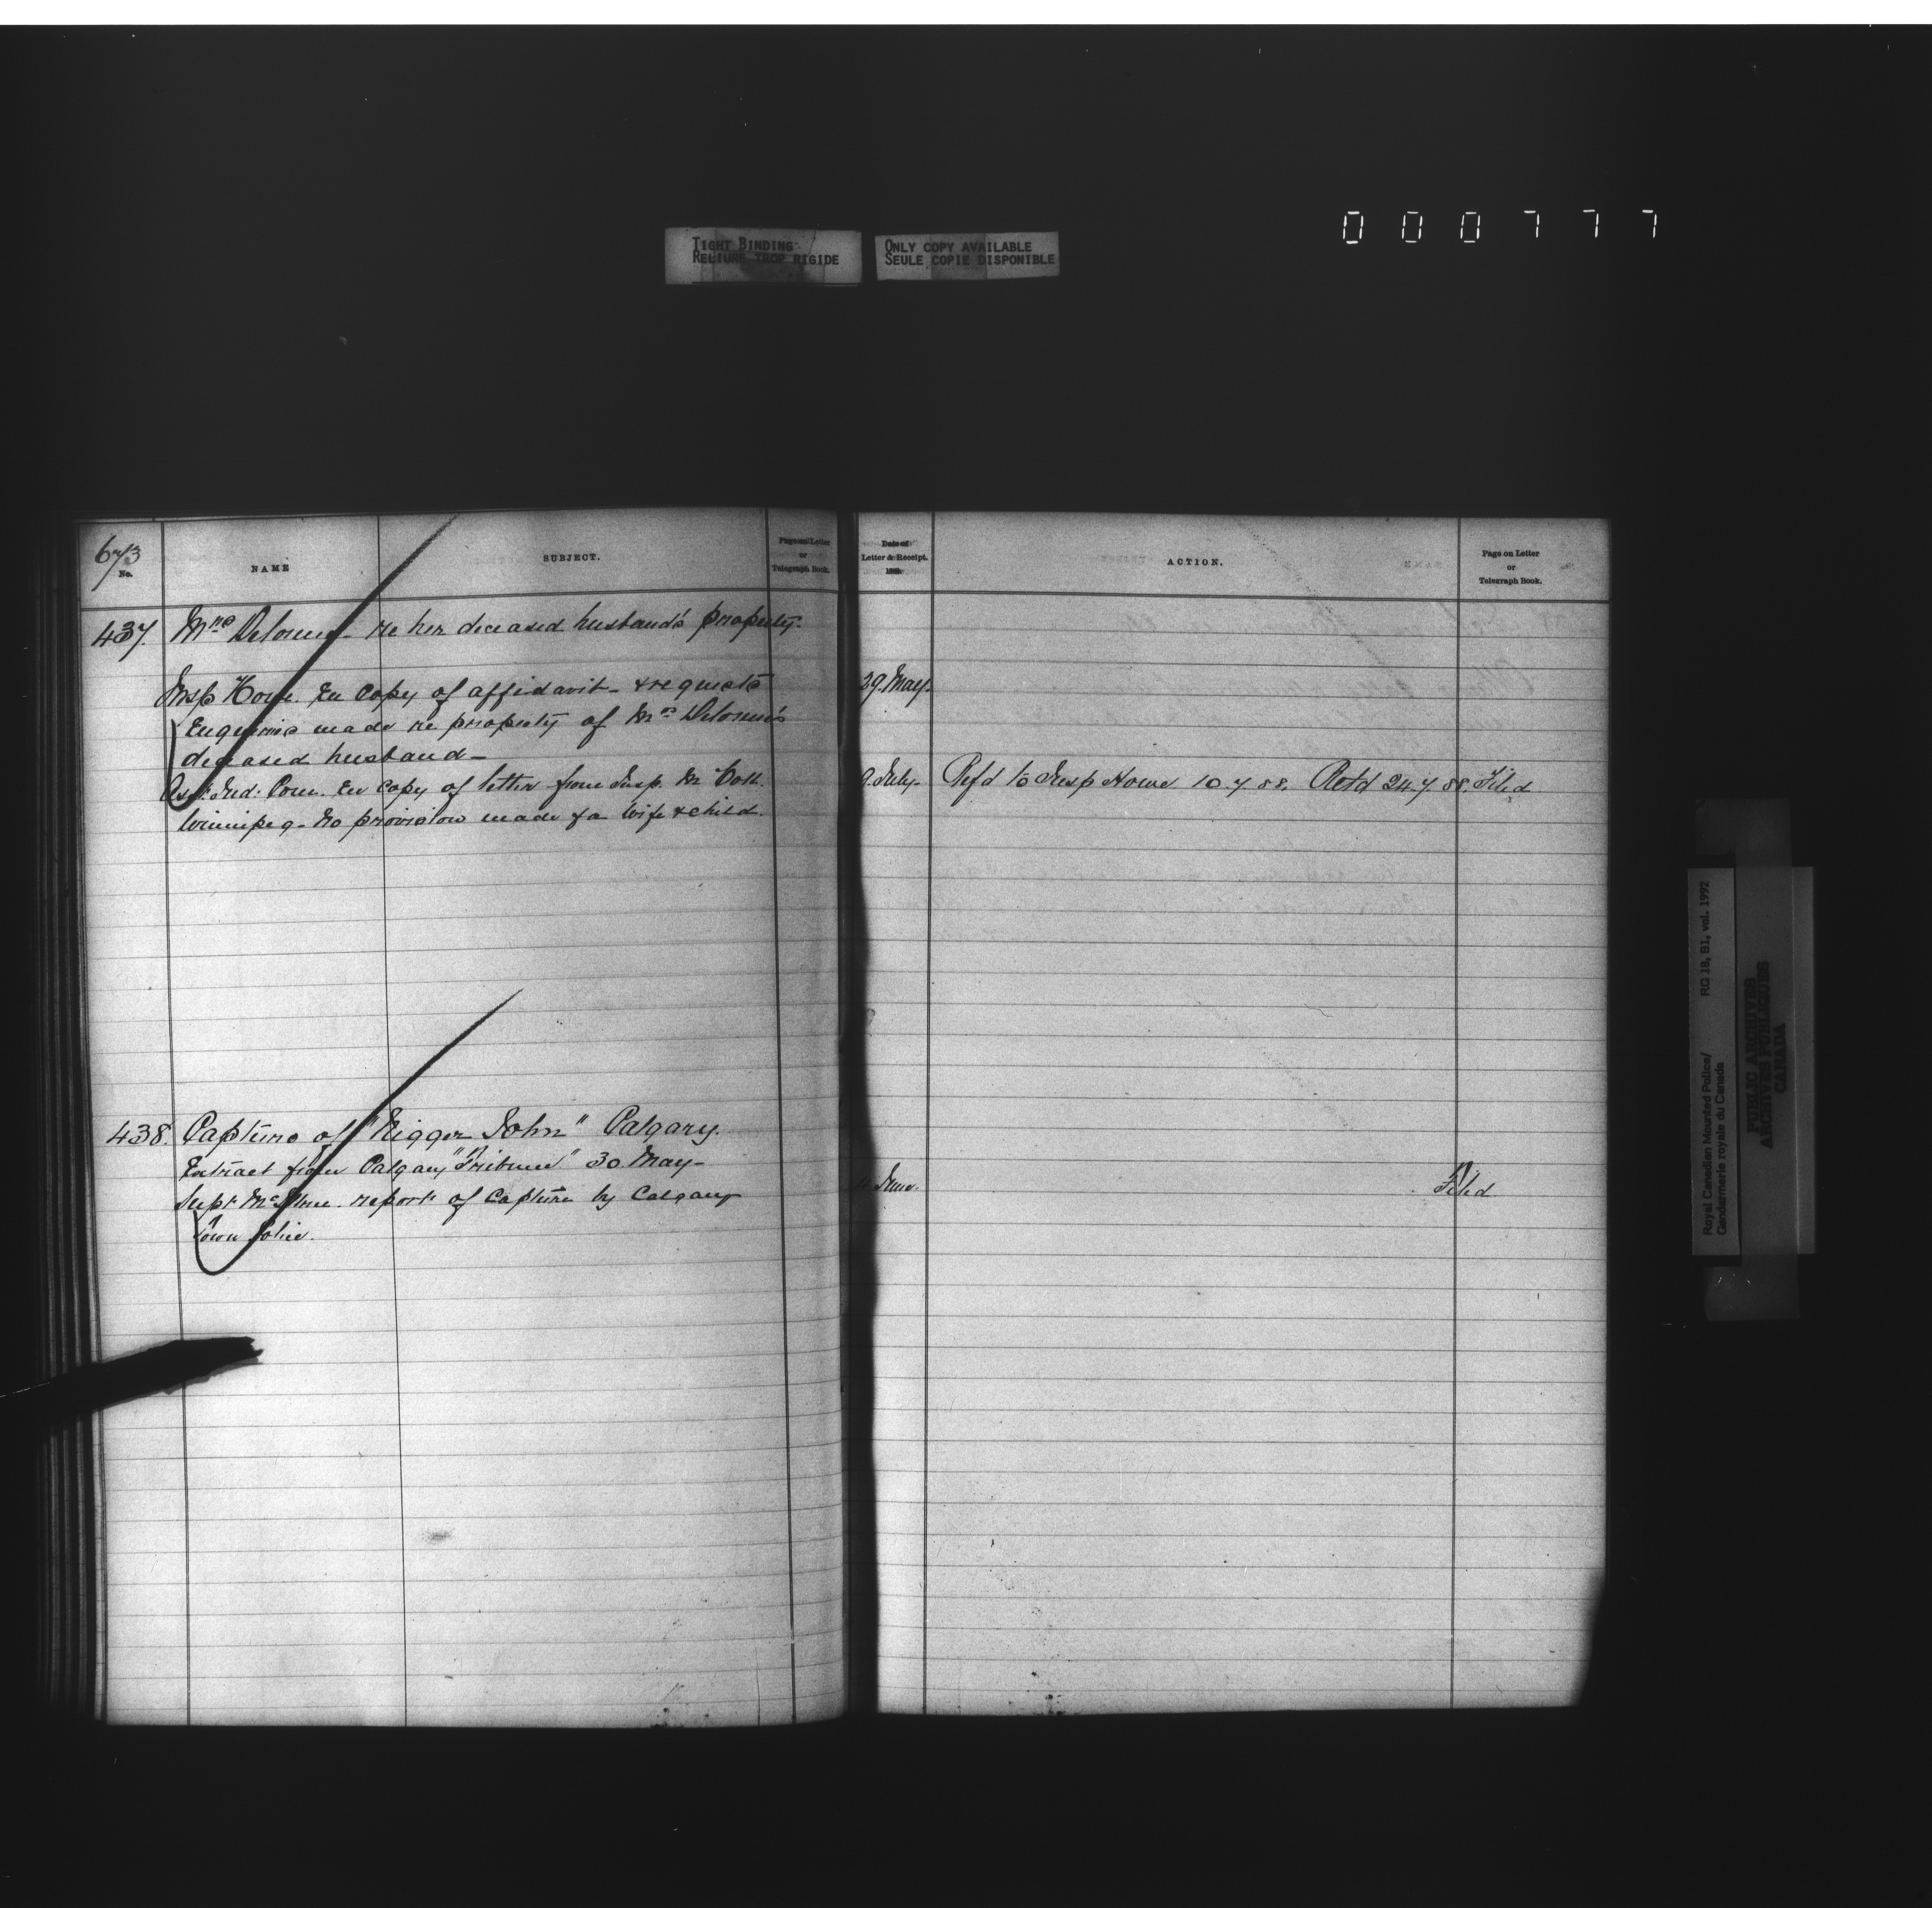 000777
TIGHT BINDING
RELIURE TROP RIGIDE
ONLY COPY AVAILABLE
SEULE COPIE DISPONIBLE
673
No.
NAME
SUBJECT.
Page on Letter
or
Telegraph Book.
Date of
Letter & Receipt.
188
ACTION.
Page on Letter
or
Telegraph Book.
437. Mrs Delorme - re her deceased husband's property.
Insp Howe. En Copy of affidavit - & requests 29. May.
Enquiries made re property of Mrs Delorme's
deceased husband -
Asst. Ind. Com. En copy of letter from Insp. Mc Coll. 9. July - Refd to Insp Howe 10.7.88. Retd 24.7.88. Filed
Winnipeg - No provision made for Wife & child.
438. Capture of "Nigger John" Calgary.
Extract from Calgary "Tribune" 30. May -
Supt McIllree. reports of Capture by Calgary June. Filed
Town Police.
Royal Canadian Mounted Police/
Gendarmerie royale du Canada
RG 18, B1, vol. 1992
PUBLIC ARCHIVES
ARCHIVES PUBLIQUES
CANADA